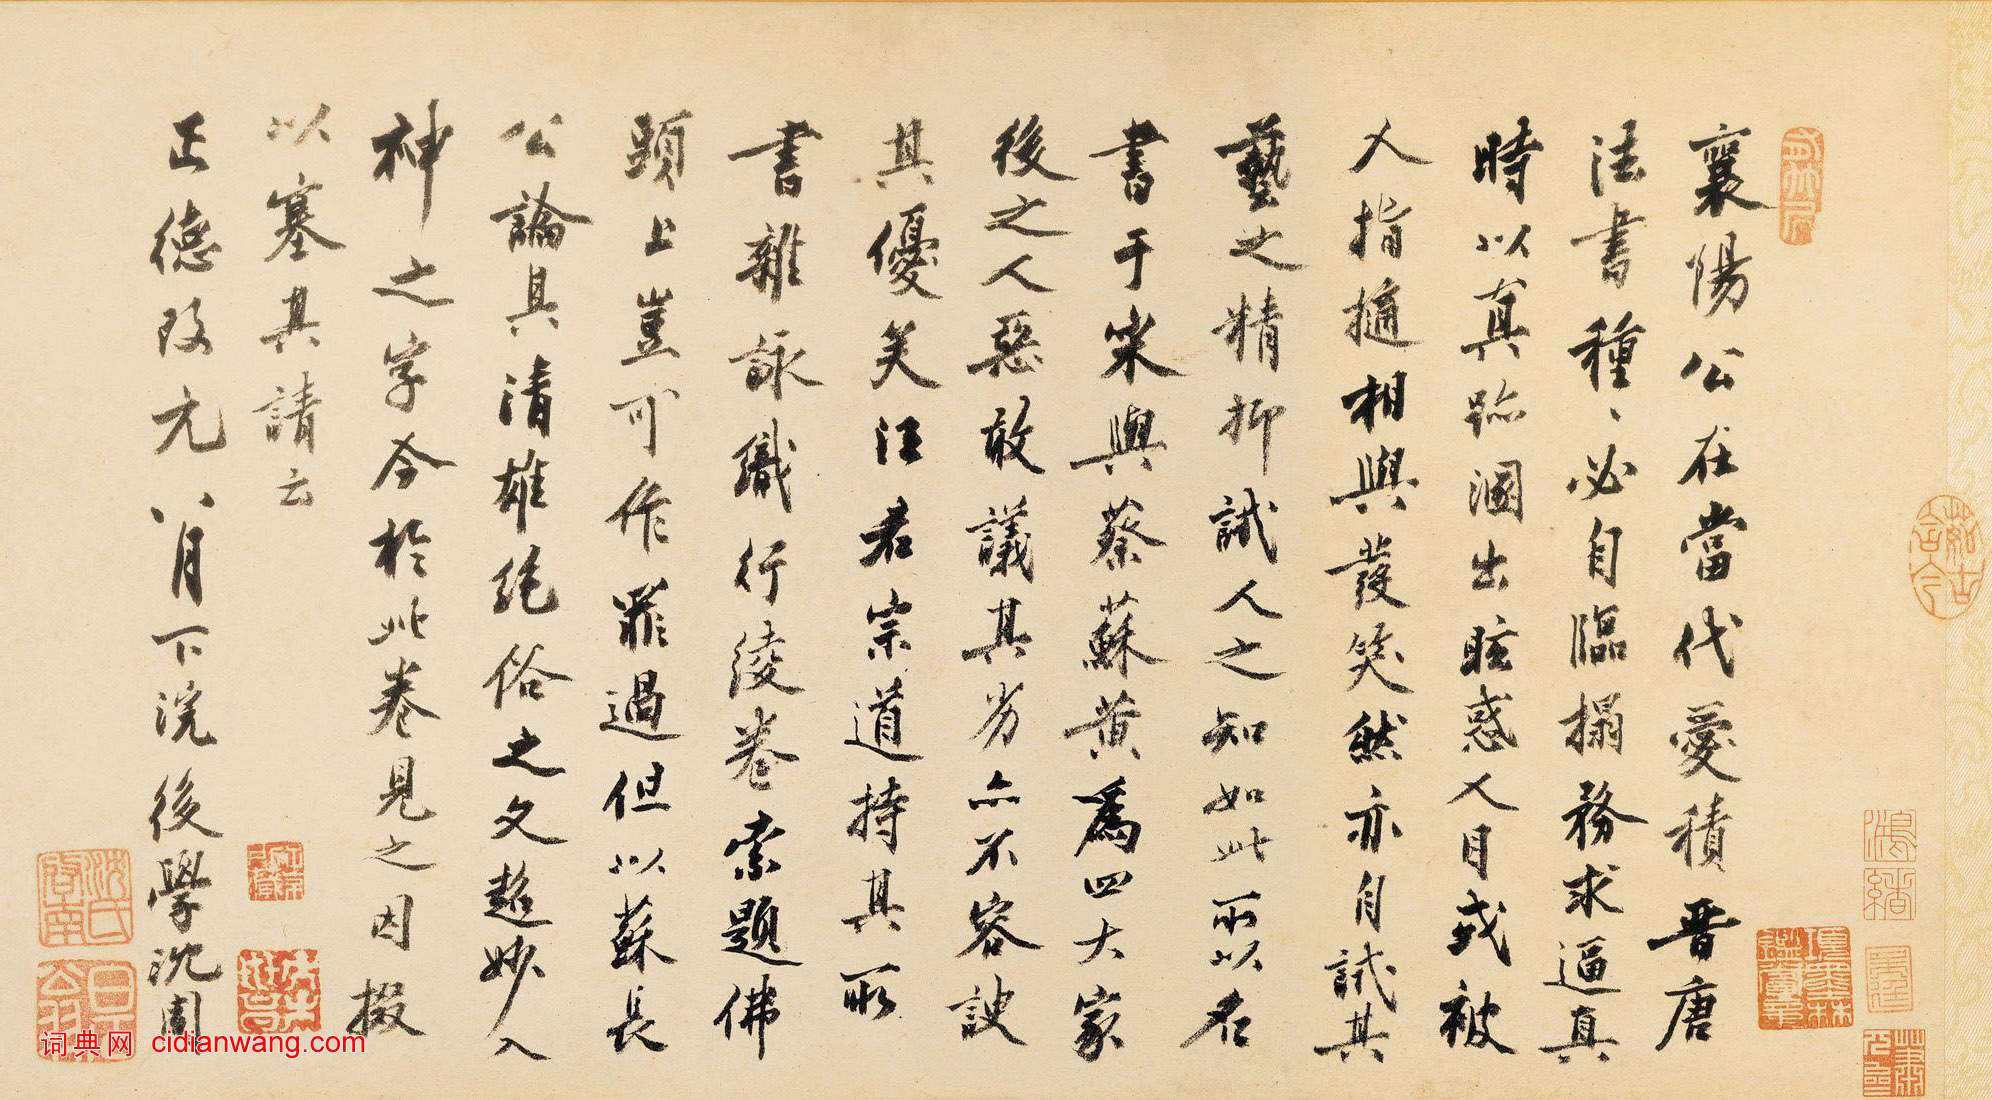 襄陽公在當代愛積晋唐
法書種〻必自臨搨務求逼真
時以真跡溷出眩惑人目或被
人指擿相與發笑然亦自試其
藝之精抑試人之知如此所以名
書于宋與蔡蘇黄爲四大家
後之人惡敢議其劣亦不容諛
其優矣汪君宗道持其所
書雜詠織行綾卷索題佛
頭上豈可作罪過但以蘇長
公論具清雄絶俗之文超妙入
神之字今於此卷見之因掇
以塞其請云
正德改元八月下浣後學沈周
沈氏啓南
詞典网 cidianwang.com